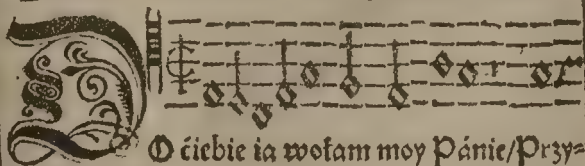 DO ćiebie ia wołam moy Pánie/Przy⸗